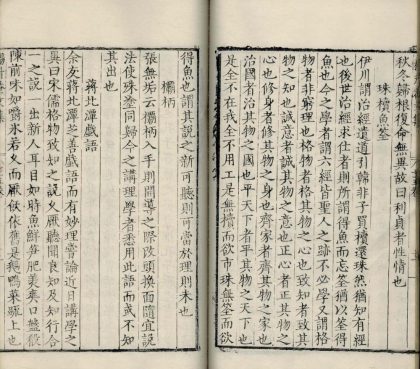 秋冬歸根復命無再故曰利貞者性情也
珠櫝魚筌
伊川謂治經遺道引韓非子買櫝還珠然猶知有經
也後世治經求仕者則所謂得魚而忘筌猶以筌得
魚也今之學者謂六經皆聖人之跡不必學又謂格
物者非窮理也格物者格其物之心也致知者致其
物之知也誠意者誠其物之意也正心者正其物之
心也修身者修其物之身也齊家者齊其物之家也
治國者治其物之國也平天下者平其物之天下也
是全不在我全不用工是無櫝而欲市珠無筌而欲
得魚也謂其說之新可聽則可當於理則未也
欛柄
張無垢云欛柄入手則開導之際改頭換面隨宜說
法使殊塗同歸今之講理學者悉用此語而或不知
其出也
蔣北潭戲語
余友蔣北潭之善戲語而有妙理嘗論近日講學之
異曰宋儒格物致知之說久厭聽聞良知及知行合
一之說一出新人耳目如時魚鮮笋肥美爽口盤殽
陳前味如爵氷若久而厭飫依舊是鵝鴨菜上也